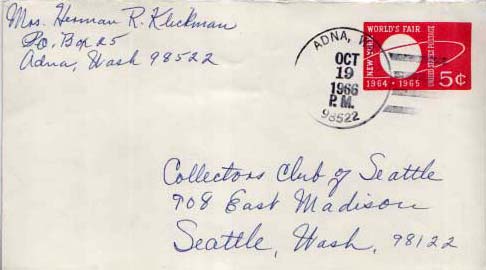 Mrs. Herman R. Klickman
P.O. Box 25
Adna, Wash 98522
ADNA, W
OCT
19
1966
P.M.
98522
NEW YORK
WORLD'S FAIR
1964 - 1965
UNITED STATES POSTAGE
5¢
Collectors Club of Seattle
908 East Madison
Seattle, Wash. 98122